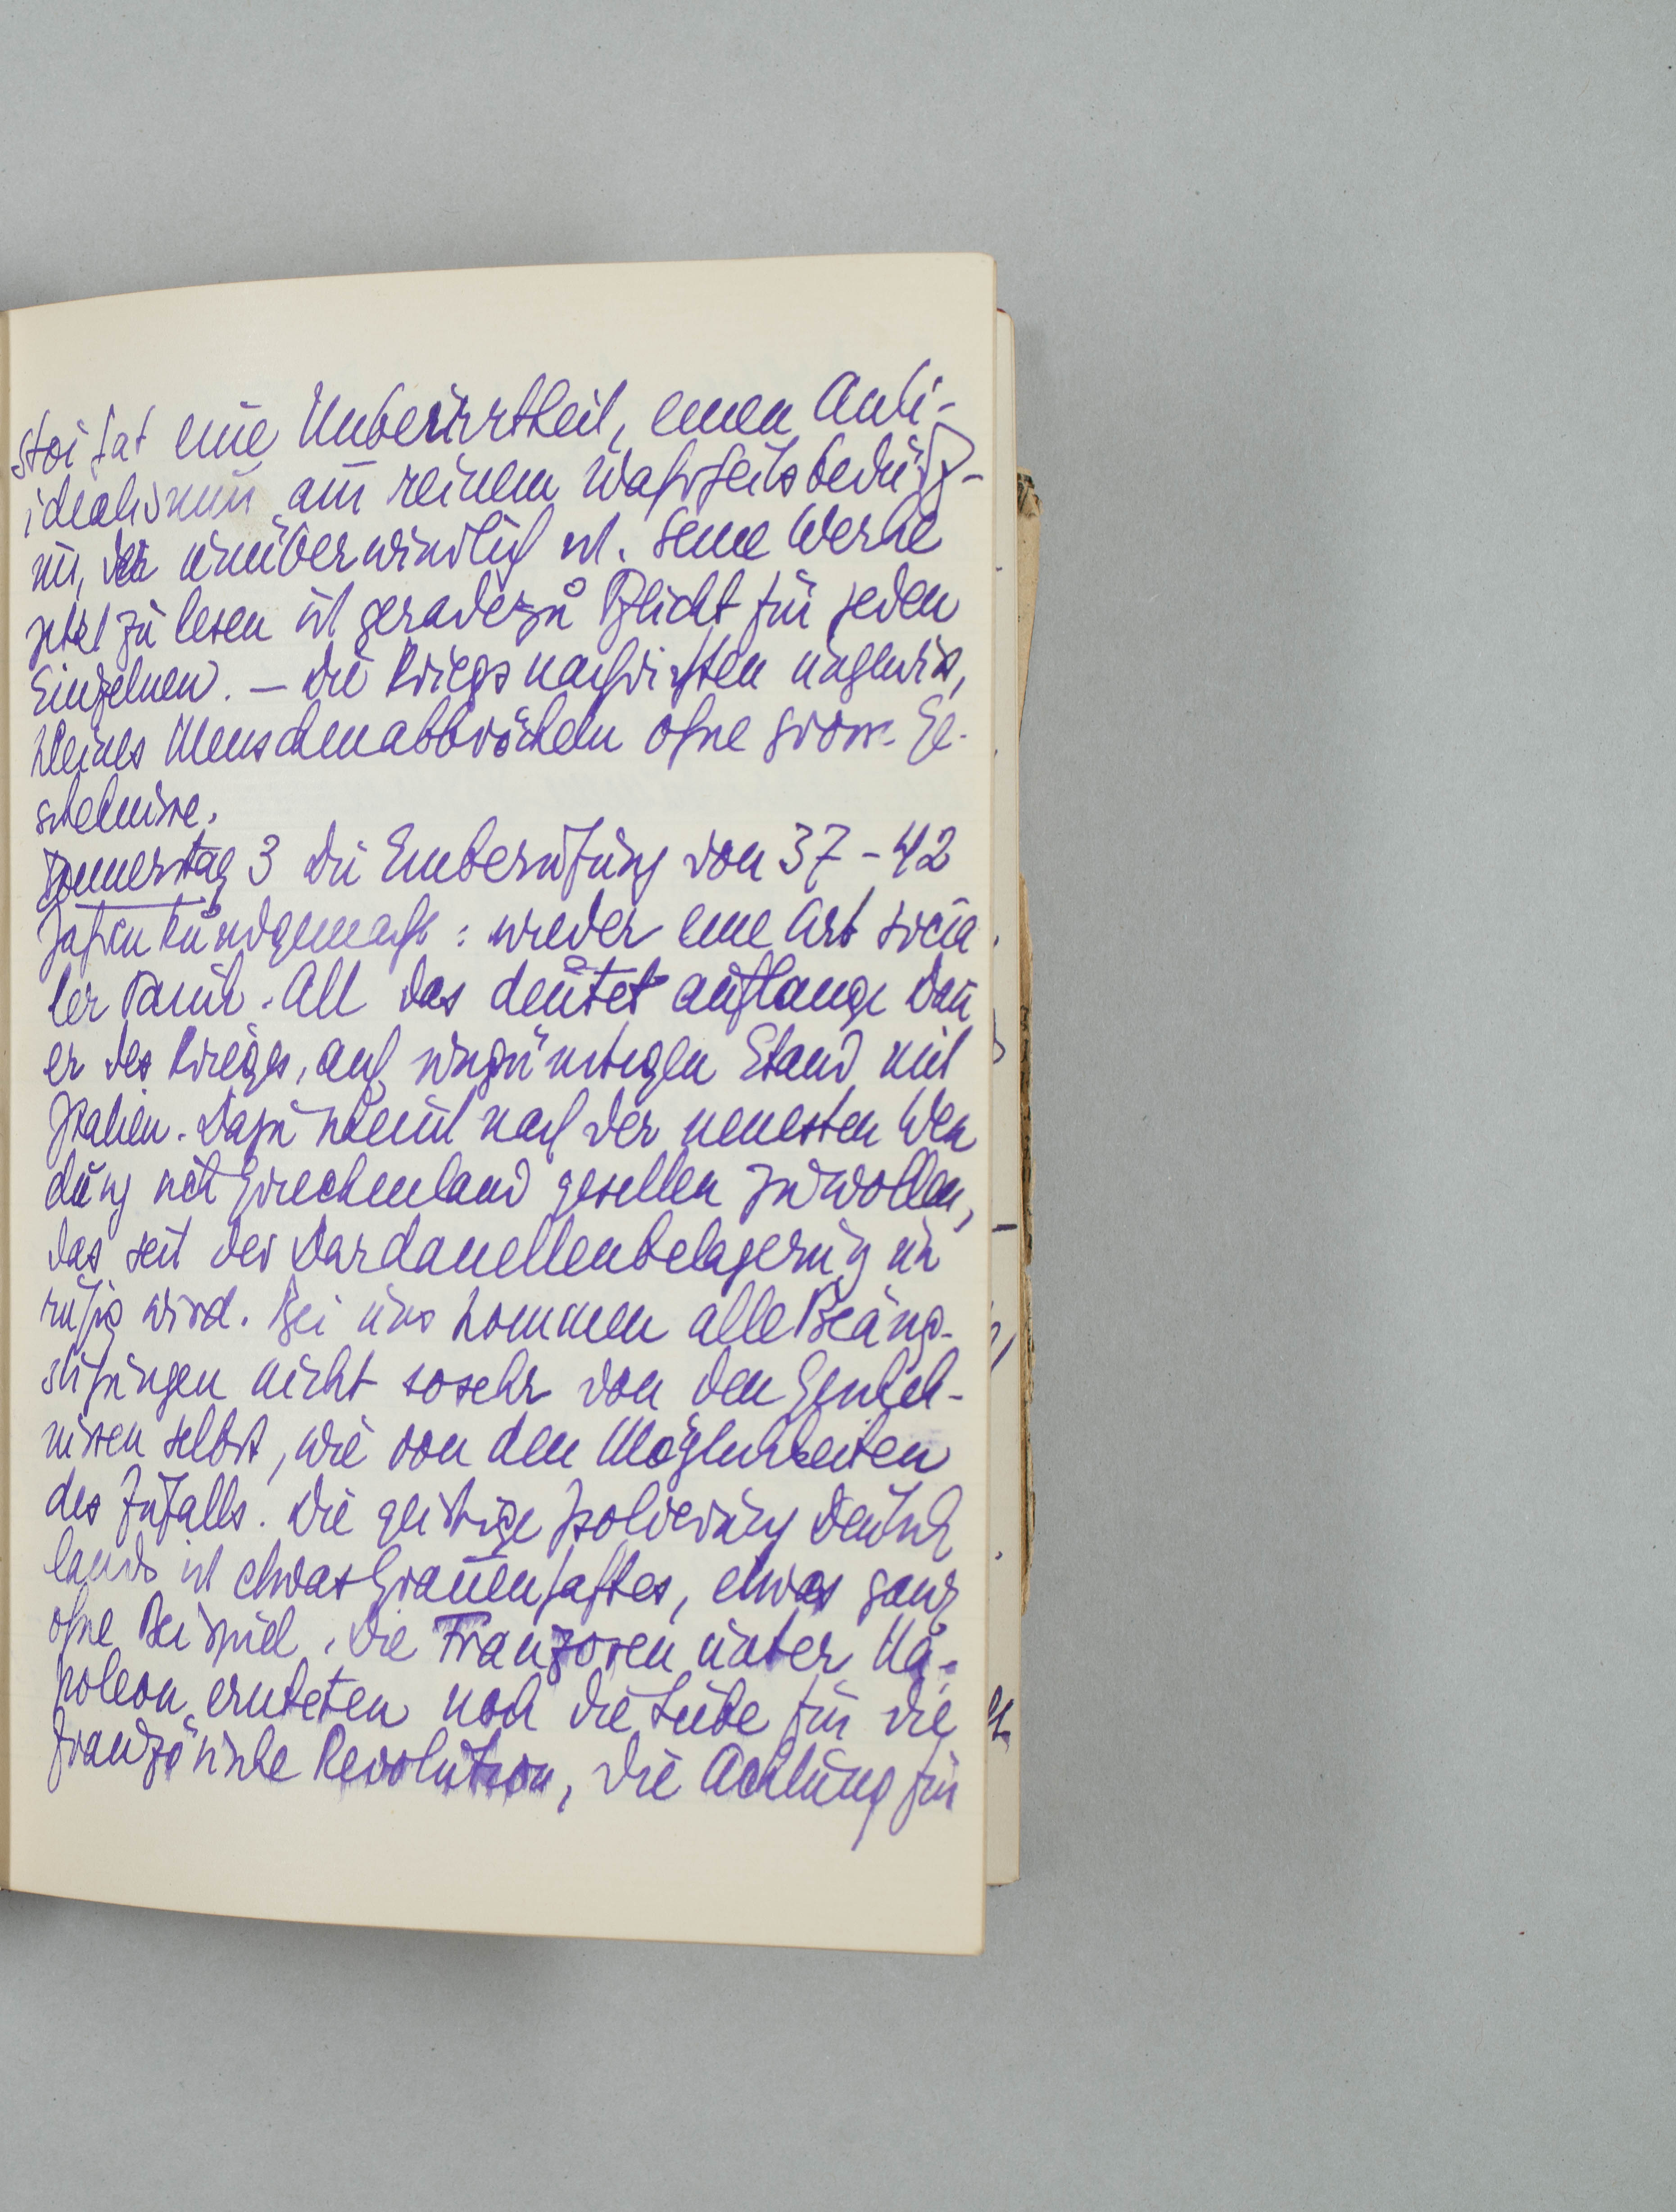 stoi hat eine Unbeirrtheit, einen Anti-
idealismus aus reinem Wahrheitsbedürf-
nis, der unüberwindlich ist. Seine Werke
jetzt zu lesen ist geradezu Pflicht für jeden
Einzelnen. – Die Kriegsnachrichten ungewis,
kleines Menschenabbröckeln ohne grosse Ge-
schehnisse.
Donnerstag 3 Die Einberufung von 37–42
Jahren kundgemacht: wieder eine Art socia
ler Panik. All das deutet auf lange Dau
er des Krieges, auf ungünstigen Stand mit
Italien. Dazu scheint nach der neuesten Wen
dung sich Griechenland gesellen zu wollen,
das seit der Dardanellenbelagerung un
ruhig wird. Bei uns kommen alle Beäng-
stigungen nicht sosehr von den Gescheh-
nissen selbst, wie von den Möglichkeiten
des Zufalls. Die geistige Isolierung Deutsch
lands ist etwas Grauenhaftes, etwas ganz
ohne Beispiel. Die Franzosen unter Na-
poleon ernteten noch die Liebe für die
französische Revolution, die Achtung für